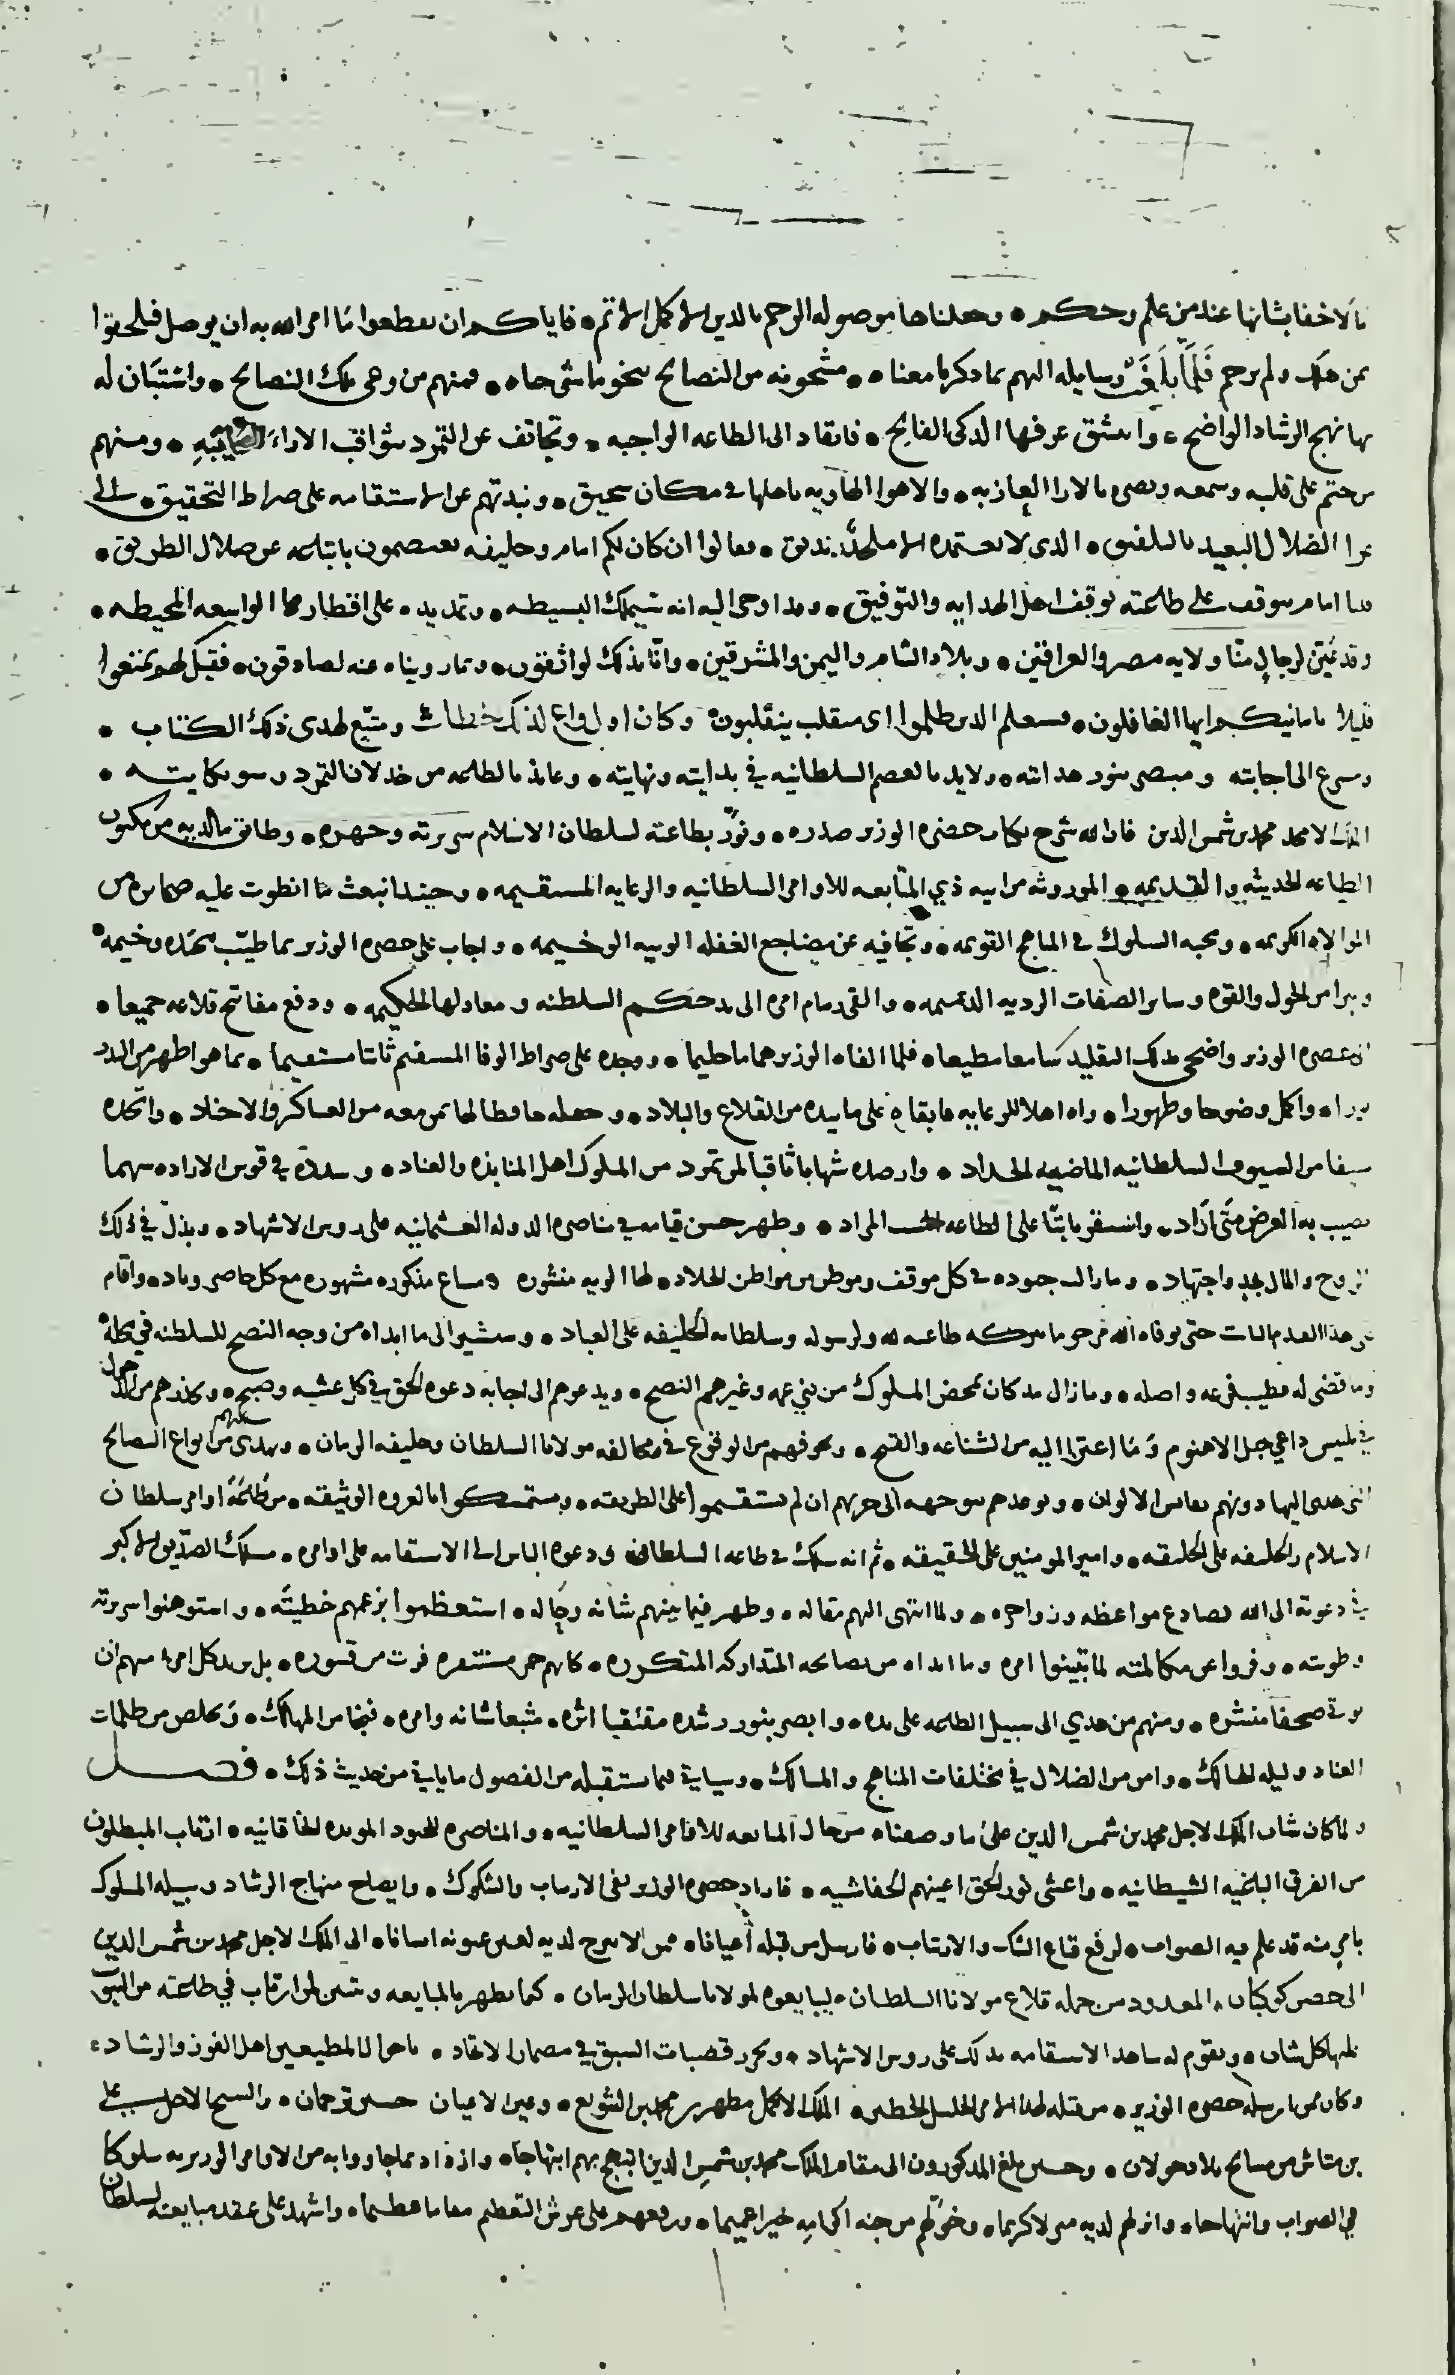 ما لا خفا بشانها عند من علم وحكم • وجعلناها موصوله الرحم بالدين اسلا كمل اسلا تم • فاياكم ان تقطعوا ما امر الله به ان يوصل فتلحقوا
بمن هلك ولم يرحم فلما بلغت رسايله اليهم بما ذكر يا معنا • مشحونه من النصائح بنحو ما شرحناه • فمنهم من وعى تلك النصائح • واستبان له
بها نهج الرشاد الواضح • وانتشق عرفها الذكى الفايح • فانقاد الى الطاعه الواجبه • وتجانف عن التمرد بثواقب الاراء الصايبه • ومنهم
من ختم على قلبه وسمعه وبصره بالارا العازبه • والاهوا الهاويه باهلها فى مكان سحيق • ونبذتهم عن الاستقامه على صراط التحقيق • الى
الضلال البعيد بالتلفيق • الذى لا يعتمده الا ملحد زنديق • فقالوا ان كان لكم امام وخليفه تعتصمون باتباعه عن ضلال الطريق •
فلنا امام يتوقف على طاعته توقف اهل الهدايه والتوفيق • وقد اوحى اليه انه سيملك البسيطه • وتمد يده على اقطارها الواسعه المحيطه •
وقد تعين لرجال منا ولايه مصر والعراقين • وبلاد الشام واليمن والمشرقين • وانا بذلك لواثقون • وبما رويناه عنه لصادقون • فقيل لهم تمتعوا
قليلا بامانيكم ايها الغافلون • وسيعلم الذين ظلموا اى منقلب ينقلبون • وكان اول واع لذلك خطاب ومتبع لهدى ذلك الكتاب •
ومسرع الى اجابته ومبصر بنور هدايته • ولايذ بالعصم السلطانيه فى بدايته ونهايته • وعايذ بالطاعه من خذلان التمرد وسو نكايته •
الملك الامجد محمد بن شمس الدين فان الله شرح بكتاب حضرة الوزير صدره • ونور بطاعته لسلطان الاسلام سريرته وجهره • وطابق ما لديه من مكنون
الطاعه الحديثه والقديمه • الموروثه من ابيه ذي المتابعه للاوامر السلطانيه والرعايه المستقيمه • وحينئذ انبعث بما انطوت عليه ضمايره من
الموالاه الكريمه • ومحبه السلوك فى المناهج القويمه • وتجافيه عن مضاجع الغفله الوبيه الوخيمه • واجاب على حضره الوزير بما طيب محتده وخيمه
وبرا من الحول والقوه وساير الصفات الرديه الذميمه • والقى زمام امره الى يد حكم السلطنه ومعادلها الحكيمه • ودفع مفاتح قلاعه جميعا •
الى حضره الوزير واضحى بذلك التقليد سامعا مطيعا • فلما الفاه الوزير هماما حليما • ووجده على صراط الوفا المستقيم ثابتا مستقيما • بما هو اظهر من البدر
نورا • واكمل وضوحا وظهورا • راه اهلا للرعايه فابقاه على ما بيده من القلاع والبلاد • وجعله حافظا لها بمن معه من العساكر والاجناد • واتخذه
سيفا من السيوف السلطانيه الماضيه الحداد • وارصده شهابا ثاقبا لمن تمرد من الملوك اهل المنابذه والعناد • وسدده فى قوس الاراده سهما
يصيب به الغرض متى اراد • واستقر ثابتا على الطاعه المراد • وظهر حسن قيامه فى مناصره الدوله العثمانيه على روس الاشهاد • وبذل فى ذلك
الروح والمال بجد واجتهاد • وما زالت جنوده فى كل موقف وموطن من مواطن الجلاد • لها الويه منشوره • مساع مذكوره مشهوره مع كل حاضر وباد • واقام
على هذا القدم بالثبات حتى توفاه الله مرحوما ببركه طاعته لله ولرسوله وسلطانه الخليفه على العباد • وسنشير الى ما ابداه من وجه النصح للسلطنه فى محله
وما قضى له بطيب فرعه واصله • وما زال مذ كان يمحض الملوك من بني عمه وغيرهم النصح • ويدعوهم الى اجابه دعوه الحق فى كل عشيه وصبح • ويحذرهم من الدخول
فى تلبيس داعي جبل الاهنوم وما اعترا اليه من الشناعه والقبح • ويخوفهم من الوقوع فى مخالفه مولانا السلطان وخليفه الزمان • ويهدى اليهم من انواع النصائح
التى هدى اليها دونهم نفايس الالوان • ويوعدهم بتوجهه الى حربهم ان لم يستقيموا على الطريقه • ويستمسكوا بالعروه الوثيقه • من طاعه اوامر سلطان
الاسلام والخليفه على الخليقه • وامير المومنين على الحقيقه • ثم انه سلك فى طاعه السلطان فى دعوه الناس الى الاستقامه على اوامره • مسلك الصديق الاكبر
فى دعوته الى الله بصادع مواعظه وزواجره • ولما انتهى اليهم مقاله • وظهر فيما بينهم شانه وحاله • استعظموا بزعمهم خطيئته • واستوهنوا سريرته
وطويته • وفروا عن مكالمته لما تبينوا امره وما ابداه من نصائحه المتداركه المتكرره • كانهم حمر مستنفره فرت من قسوره • بل يريد كل امرئ منهم ان
يوتى صحفا منشره • ومنهم من هدي الى سبيل الطاعه على يده • وابصر بنور رشده مقتفيا اثره • متبعا شانه وامره • فنجا من المهالك • وتخلص من ظلمات
العناد وليله الحالك • وامن من الضلال فى مختلفات المناهج والمسالك • وسياتى فيما نستقبله من الفصول ما ياتي من حديث ذلك • فصــــل
ولما كان شان الملك الاجل محمد بن شمس الدين على ما وصفناه من حال المتابعه للاوامر السلطانيه • والمناصره للجنود المويده الخاقانيه • ارتاب المبطلون
من الفرق الباغيه الشيطانيه • واعشى نور الحق اعينهم الخفاشيه • فاراد حضره الوزير نفى الارتياب والشكوك • وايضاح منهاج الرشاد وسبيله المسلوك
بامر منه قد علم فيه الصواب • لرفع قناع الشك والارتياب • فارسل من قبله اعيانا • ممن لا يبرح لديه لعين عيونه انسانا • الى الملك الاجل محمد بن شمس الدين
الى حصن كوكبان • المعدود من جمله قلاع مولانا السلطان • ليبايعوه لمولانا سلطان الزمان • كما يظهر بالمبايعه ويتبين لمن ارتاب في طاعته من اليقين
بلها كل شان • ويقوم له شاهد الاستقامه بذلك على روس الاشهاد • ويحرز قصبات السبق فى مضمار الانقياد • باحوال المطيعين اهل الفوز والرشاد •
وكان ممن ارسله حضره الوزير • من قبله لهذا الامر الجليل الخطير • الملك الاكمل مطهر بن محمد بن الشويع • وعين الاعيان حسين ترجمان • والشيخ الاجل على
بن متاش من مشايخ بلاد خولان • وحين بلغ المذكورون الى مقام الملك محمد بن شمس الدين ابتهج بهم ابتهاجا • وازداد بما جاووا به من الاوامر الوزيريه سلوكا
فى الصواب وانتهاجا • وانزلهم لديه منزلا كريما • وخولهم من جنه اكرامه خيرا عميما • ورفعهم على عرش التعظيم مقاما عظيما • واشهد على عقد مبايعته لسلطان